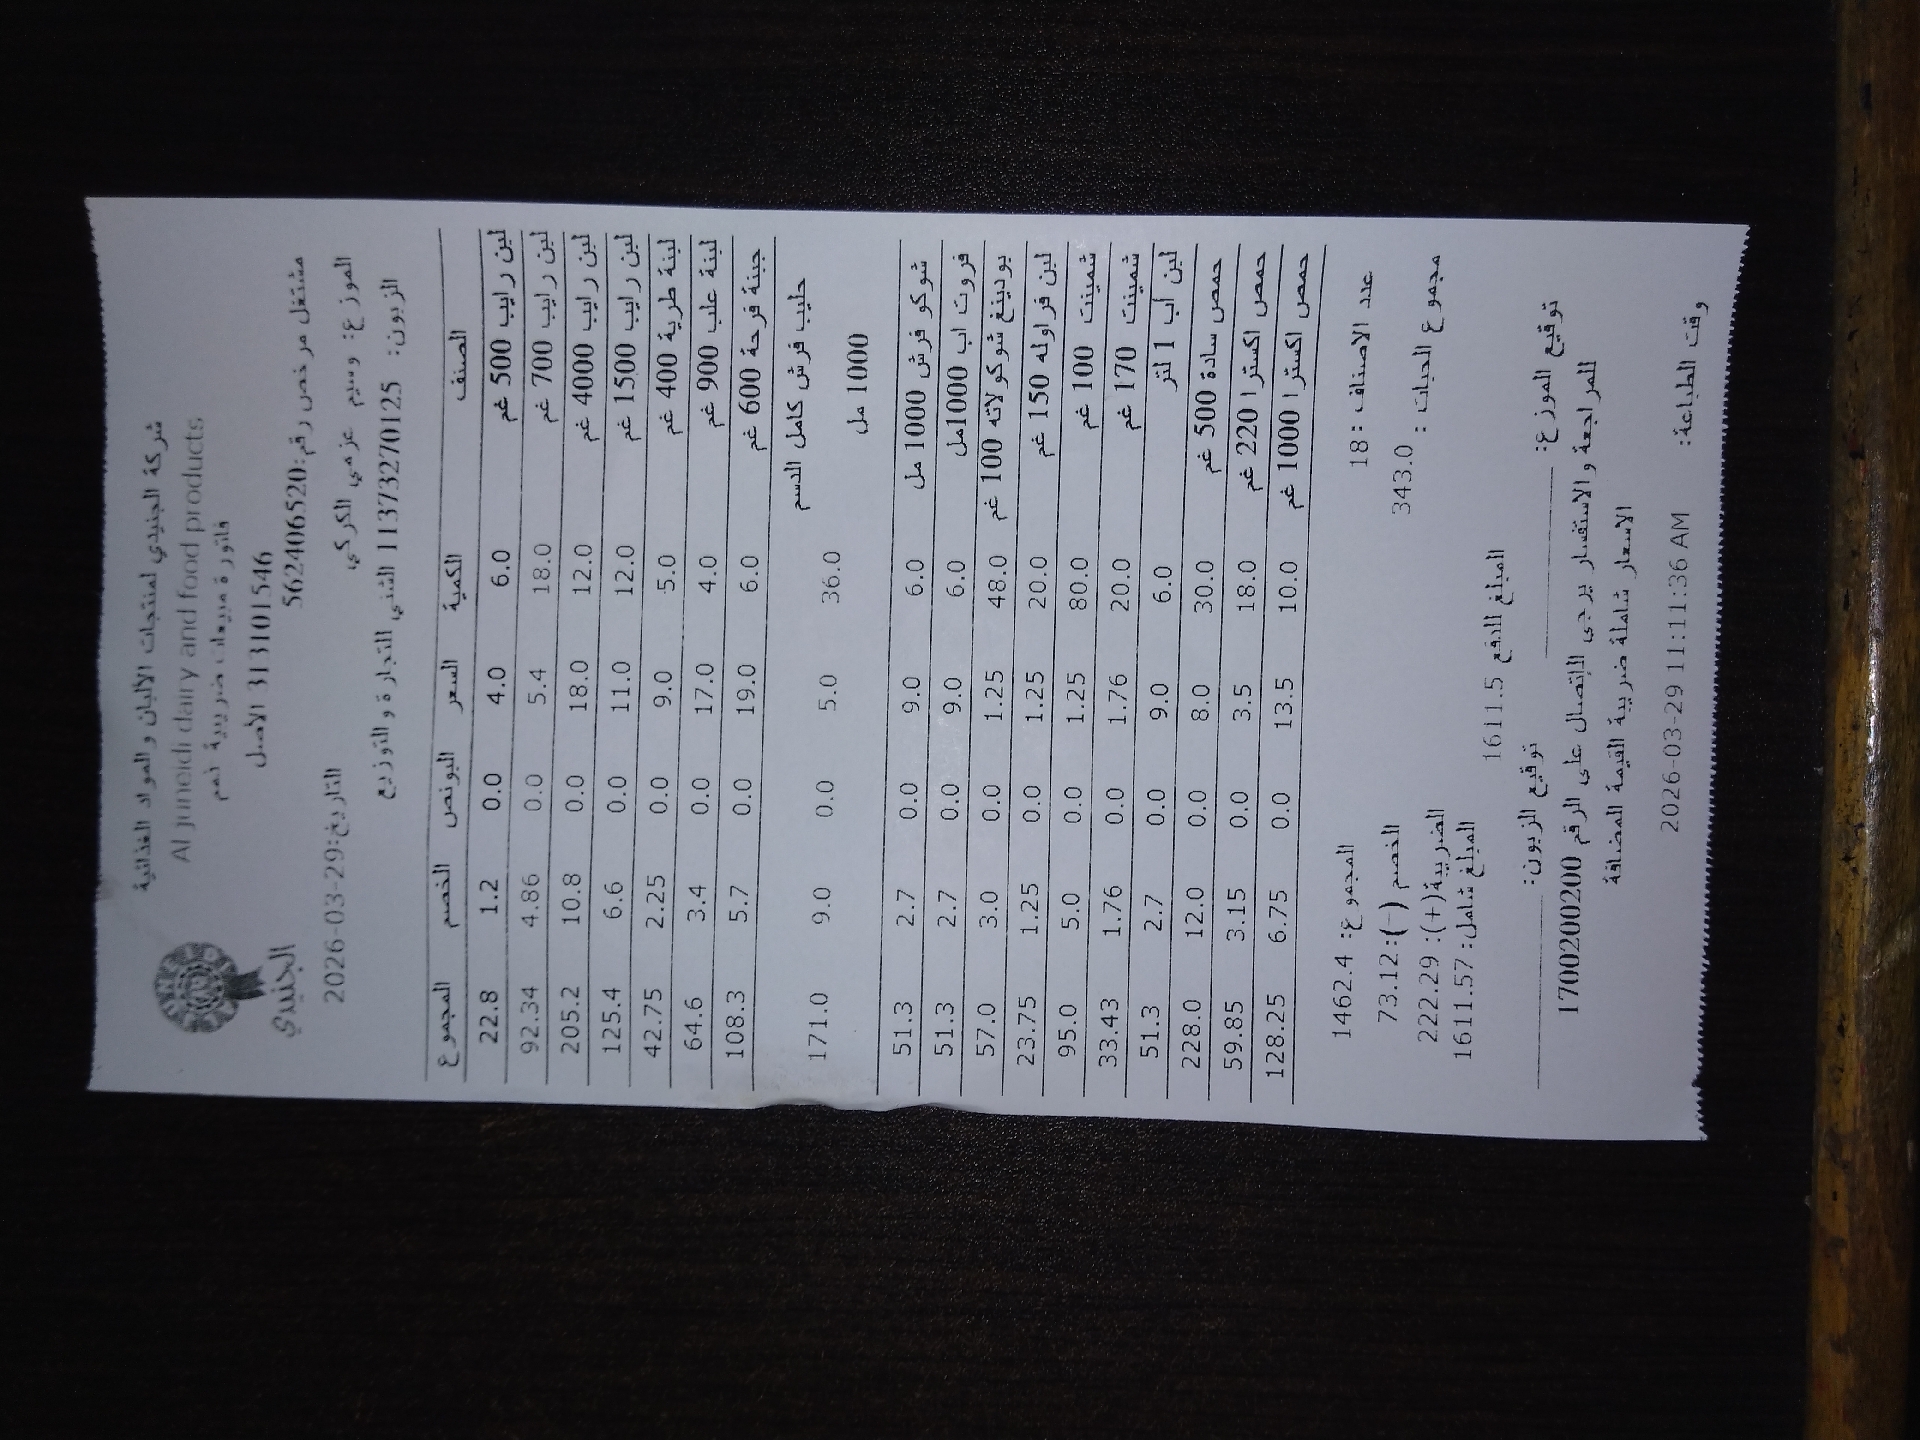 شركة الجنيدي لمنتجات الالبان والمواد الغذائية
Al juneidi dairy and food products
فاتورة مبيعات ضريبية ذمم
313101546 الاصل
الجنيدي
مشتغل مرخص رقم:562406520
التاريخ:2026-03-29
الموزع: وسيم عزمي الكركي
الزبون: 1137327012‎5 الشني للتجارة والتوزيع
الصنف الكمية السعر البونص الخصم المجموع
لبن رايب 500 غم 6.0 4.0 0.0 1.2 22.8
لبن رايب 700 غم 18.0 5.4 0.0 4.86 92.34
لبن رايب 4000 غم 12.0 18.0 0.0 10.8 205.2
لبن رايب 1500 غم 12.0 11.0 0.0 6.6 125.4
لبنة طرية 400 غم 5.0 9.0 0.0 2.25 42.75
لبنة علب 900 غم 4.0 17.0 0.0 3.4 64.6
جبنة فرحة 600 غم 6.0 19.0 0.0 5.7 108.3
حليب فرش كامل الدسم
1000 مل 36.0 5.0 0.0 9.0 171.0
شوكو فرش 1000 مل 6.0 9.0 0.0 2.7 51.3
فروت اب 1000مل 6.0 9.0 0.0 2.7 51.3
بودينغ شوكولاته 100 غم 48.0 1.25 0.0 3.0 57.0
لبن فراوله 150 غم 20.0 1.25 0.0 1.25 23.75
شمينت 100 غم 80.0 1.25 0.0 5.0 95.0
شمينت 170 غم 20.0 1.76 0.0 1.76 33.43
لبن اب 1 لتر 6.0 9.0 0.0 2.7 51.3
حمص سادة 500 غم 30.0 8.0 0.0 12.0 228.0
حمص اكسترا 220 غم 18.0 3.5 0.0 3.15 59.85
حمص اكسترا 1000 غم 10.0 13.5 0.0 6.75 128.25
عدد الاصناف : 18
المجموع: 1462.4
الخصم (-): 73.12
مجموع الحبات : 343.0
الضريبة(+): 222.29
المبلغ شامل: 1611.57
المبلغ للدفع 1611.5
توقيع الموزع: توقيع الزبون:
للمراجعة والاستفسار يرجى الإتصال على الرقم 1700200200
الاسعار شاملة ضريبة القيمة المضافة
وقت الطباعة: 2026-03-29 11:11:36 AM